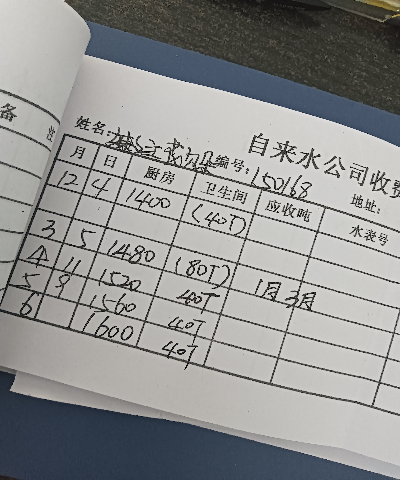 备 注
自来水公司收费
姓名: 编号: 150168 地址:
月 日 厨房 卫生间 应收吨 水表号
12 4 1400 (40T)
3 5 1480 (80T) 1月3月
4 11 1520 40T
5 9 1560 40T
6 1600 40T